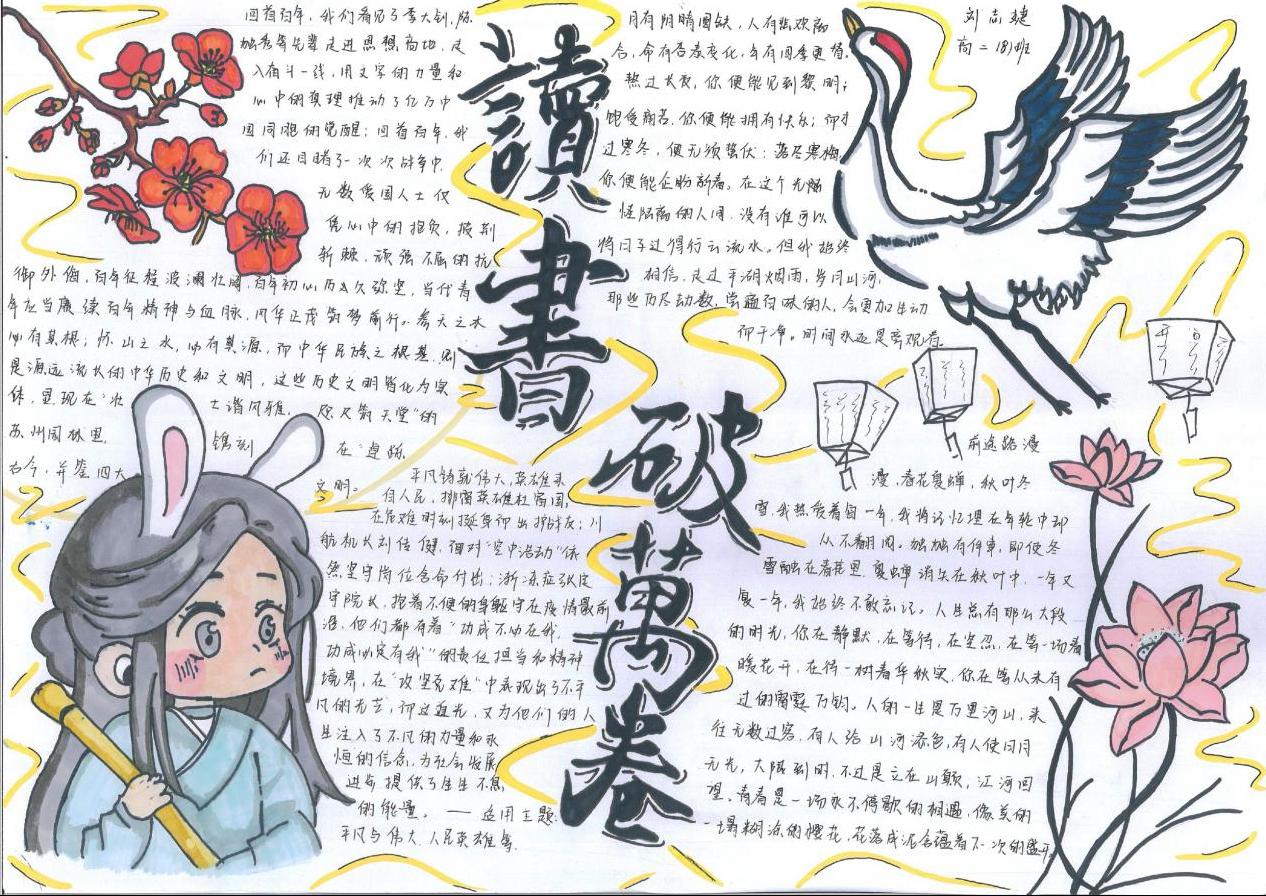 回首百年，我们看见了李大钊，陈
独秀等先辈走进思想高地，走
入奋斗一线，用文字的力量和
心中的真理推动了亿万中
国同胞的觉醒；回首百年，我
们还目睹了一次次战争中，
无数爱国人士仅
凭心中的抱负，披荆
斩棘，顽强不屈的抗
御外侮，百年征程波澜壮阔，百年初心历久弥坚，当代青
年应当赓续百年精神与血脉，风华正茂筑梦前行。参天之木
必有其根；怀山之水，必有其源，而中华民族之根基，则
是源远流长的中华历史和文明，这些历史文明皆化为实
体，显现在"壮士谱风雅，
苏州园林里，镌刻在"卓跞
古今，并鉴四大文明。
讀書破萬卷
平凡铸就伟大，英雄来
自人民，挪威英雄杜富国，
在危难时刻挺身而出护战友；川
航机长刘传健，面对"空中浩劫"依
然坚守岗位舍命付出；浙
守院长，拖着不便的身躯守在疫情最前
沿，他们都有着"功成不必在我，
功成必定有我"的责任担当和精神
境界，在"攻坚克难"中表现出了不平
凡的光芒，而这道光，又为他们的人
生注入了不凡的力量和永
恒的信念，为社会发展
进步提供了生生不息
的能量。——适用主题：
平凡与伟大 人民英雄等
月有阴晴圆缺，人有悲欢离
合，命有否泰变化，年有四季更替。
熬过长夜，你便能见到黎明；
饱受痛苦，你便能拥有快乐；耐
过寒冬，便无须蛰伏；落尽寒梅
你便能企盼新春。在这个光
怪陆离的人间，没有谁可以
将日子过得行云流水。但我始终
相信，走过平湖烟雨，岁月山河，
那些历尽劫数，尝遍百味的人，会更加生动
而干净。时间永远是旁观者
刘志
高二（8）班
前途路漫
漫，春花夏蝉，秋叶冬
雪，我热爱着每一年，我将记忆埋在年轮中却
从不翻阅。独独有件事，即使冬
雪融在春花里，夏蝉消失在秋叶中，一年又
复一年，我始终不敢忘记。人生总有那么大段
的时光，你在静默，在等待，在坚忍，在等一场春
暖花开，在待一树春华秋实，你在等从未有
过的雷霆万钧。人的一生是万里河山，来
往无数过客，有人给山河添色，有人使日月
无光，大限到时，不过是立在山巅，江河回
望。青春是一场永不停歇的相遇，像美的
一塌糊涂的樱花，花落成泥含蕴着下一次的盛开。